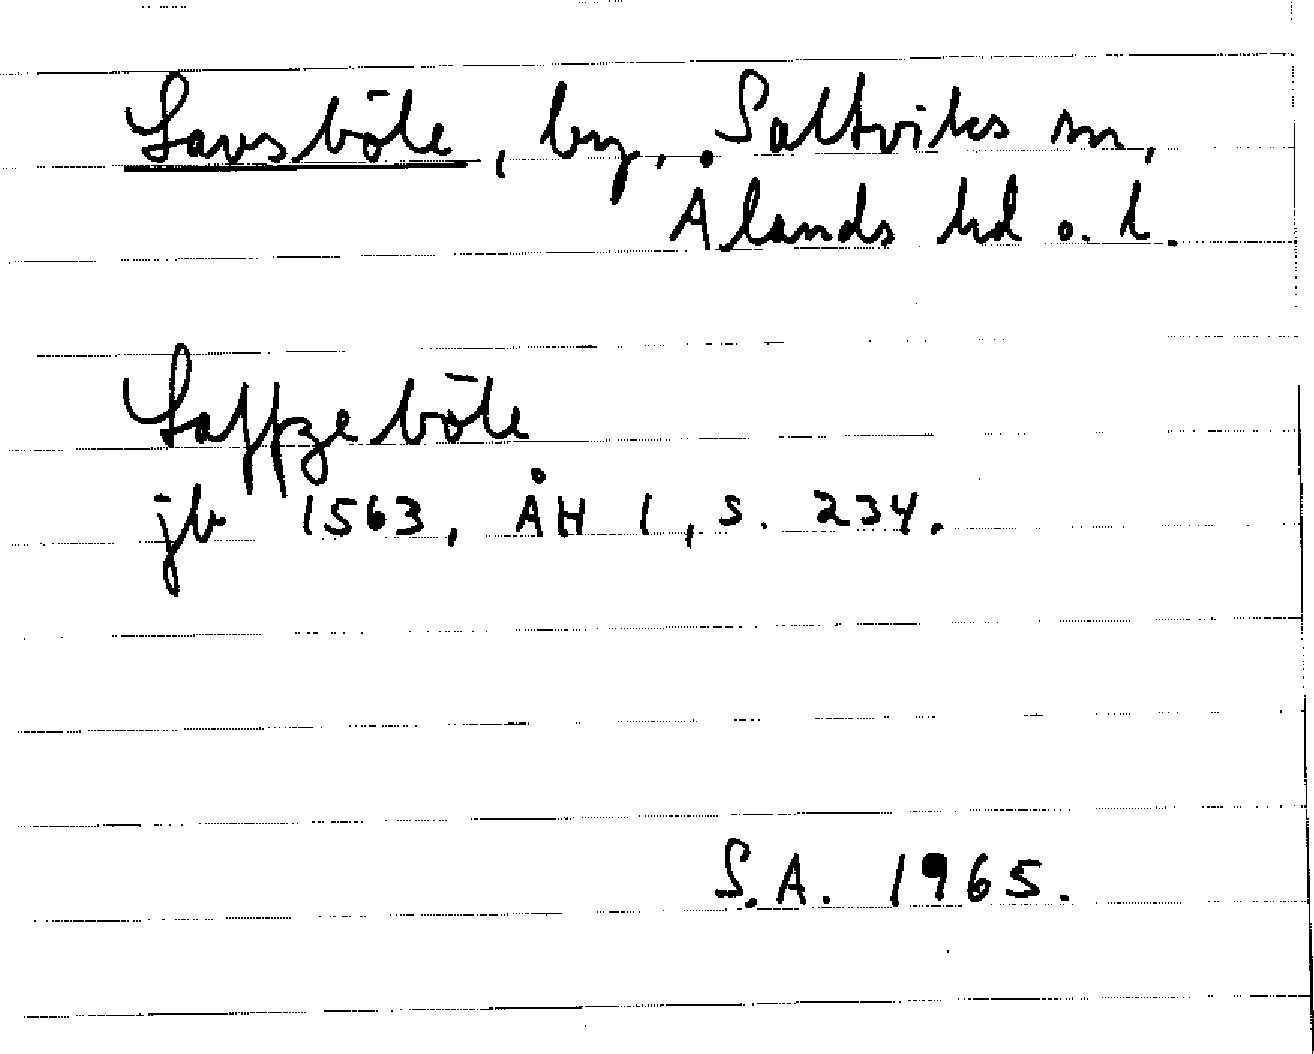 Lavsböle, by, Saltviks sn,
Ålands hd o. l.
Laffzeböle
jb 1563, ÅH 1, s. 234.
S.A. 1965.